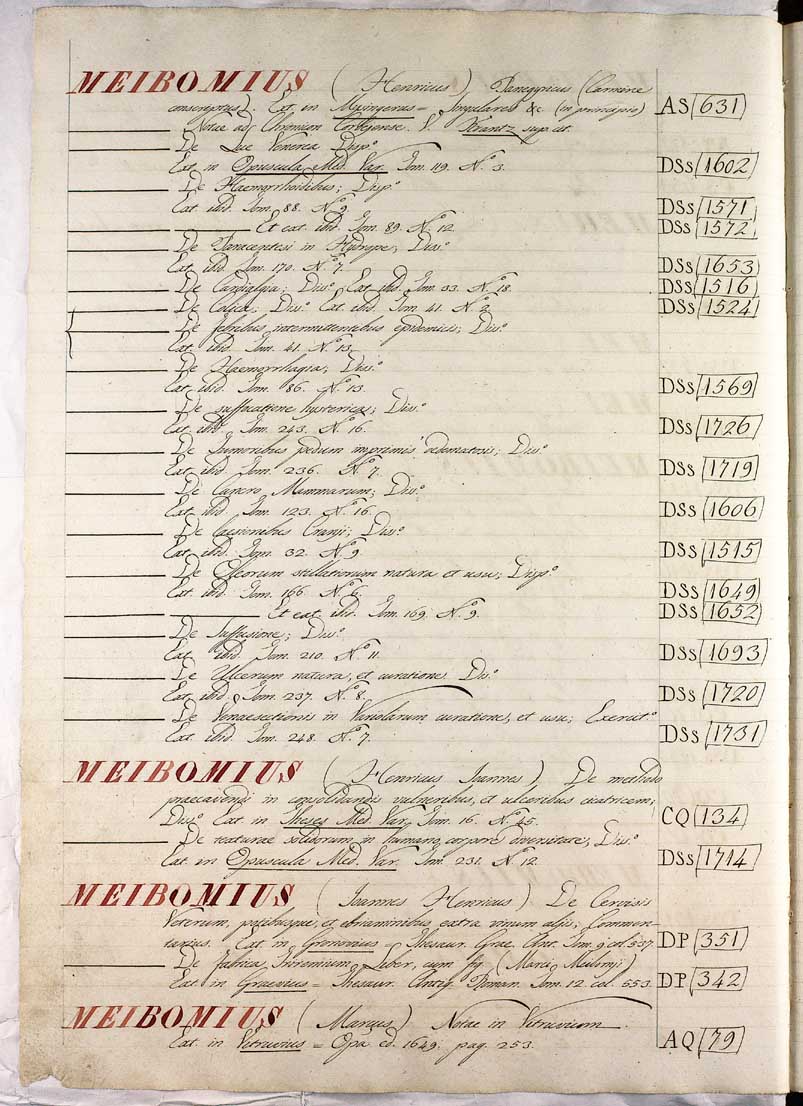 MEIBOMIUS (Henricus) Panegyricus (Carmine
conscriptus). Ext. in Mysingerus = Singulares &c. (in principio) AS 631
Notae ad Chronicon Corbejense. V. Krantz sup. cit.
De Lue Venerea Disp.º
Ext. in Opuscula Med. Var. Tom. 119. N.º 3. DSs 1602
De Haemorrhoidibus; Disp.º
Ext. ibid. Tom. 88. N.º 9. DSs 1571
Et ext. ibid. Tom. 89. N.º 12. DSs 1572
De Paracentesi in Hydrope; Diss.º
Ext. ibid. Tom. 170. N.º 7. DSs 1653
De Cardialgia; Diss.º Ext. ibid. Tom. 33. N.º 18. DSs 1516
De Colica; Diss.º Ext. ibid. Tom. 41. N.º 2. DSs 1524
De febribus intermittentibus epidemicis; Diss.º
Ext. ibid. Tom. 41. N.º 13.
De Haemorrhagia; Diss.º
Ext. ibid. Tom. 86. N.º 13. DSs 1569
De suffocatione hysterica; Diss.º
Ext. ibid. Tom. 243. N.º 16. DSs 1726
De Tumoribus pedum imprimis oedematosis; Diss.º
Ext. ibid. Tom. 236. N.º 7. DSs 1719
De Cancro Mammarum; Diss.º
Ext. ibid. Tom. 123. N.º 16. DSs 1606
De laesionibus Cranji; Diss.º
Ext. ibid. Tom. 32. N.º 9. DSs 1515
De Oleorum stillatiorum natura et usu; Disp.º
Ext. ibid. Tom. 166. N.º 6. DSs 1649
Et ext. ibid. Tom. 169. N.º 9. DSs 1652
De Suffusione; Diss.º
Ext. ibid. Tom. 210. N.º 11. DSs 1693
De Ulcerum natura, et curatione. Dis.º
Ext. ibid. Tom. 237. N.º 8. DSs 1720
De Venaesectionis in Variolarum curatione, et usu; Exercit.º
Ext. ibid. Tom. 248. N.º 7. DSs 1731
MEIBOMIUS (Henricus Joannes) De methodo
praecavendi in consolidandis vulneribus, et ulceribus cicatricem;
Diss.º Ext. in Theses Med. Var. Tom. 16. N.º 45. CQ 134
De texturae solidorum in humano corpore diversitate; Dis.º
Ext. in Opuscula Med. Var. Tom. 231. N.º 12. DSs 1714
MEIBOMIUS (Joannes Henricus) De Cervisiis
Veterum, potibusque, et ebriaminibus extra vinum aliis; Commen-
tarius. Ext. in Gronovius = Thesaur. Grae. Ant. Tom. 9. col. 537. DP 351
De fabrica Triremium Liber, cum fig. (Marci Meibomj)
Ext. in Graevius = Thesaur. Antiq. Roman. Tom. 12. col. 553. DP 342
MEIBOMIUS (Marcus) Notae in Vitruvium.
Ext. in Vitruvius = Opa. ed. 1649. pag. 253. AQ 79